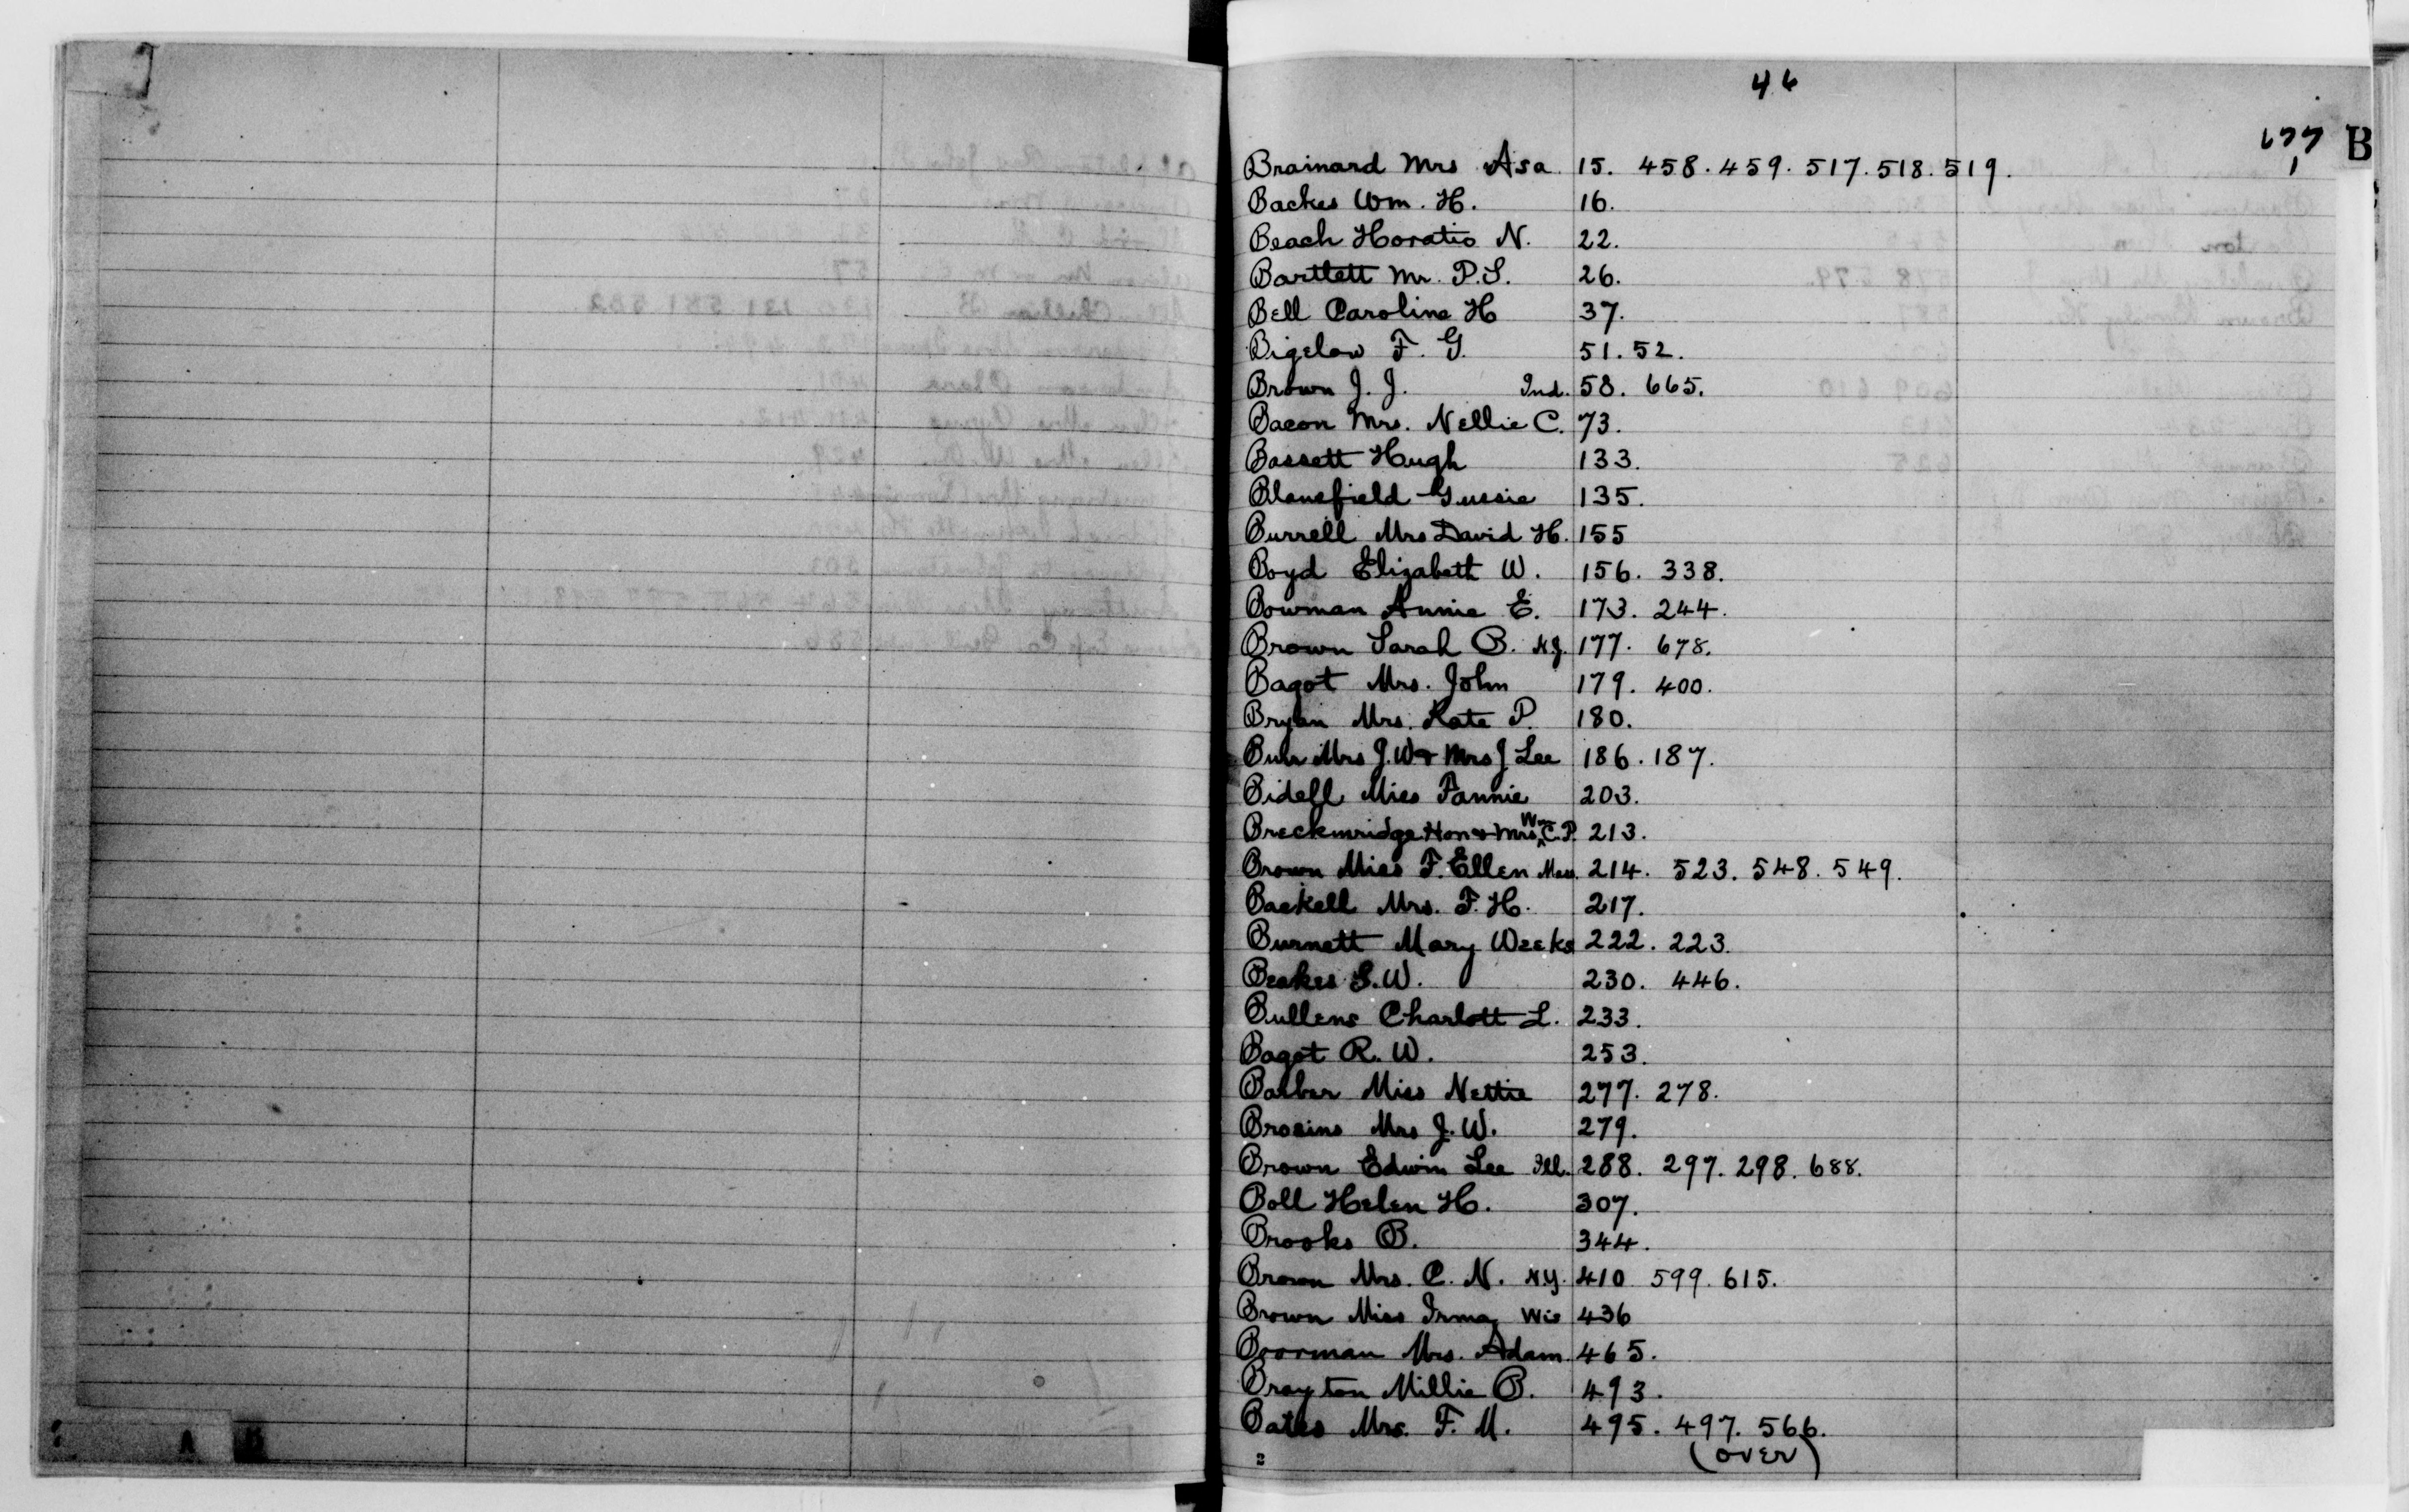 46
677 B
1
Brainard Mrs Asa 15. 458. 459. 517. 518. 519.
Backes Wm. H. 16.
Beach Horatio N. 22.
Bartlett Mr. P.S. 26.
Bell Caroline H 37.
Bigelow F. G. 51. 52.
Brown J. J. Ind. 58. 665.
Bacon Mrs. Nellie C. 73.
Bassett Hugh 133.
Blanefield Gussie 135.
Burrell Mrs David H. 155
Boyd Elizabeth W. 156. 338.
Bowman Annie E. 173. 244.
Brown Sarah B. N.J. 177. 678.
Bagot Mrs. John 179. 400.
Bryan Mrs. Kate P. 180.
Mrs J.W & Mrs J Lee 186. 187.
Bidell Miss Fannie 203.
Breckinridge Hon & Mrs Wm C. P. 213.
Brown Miss F. Ellen Mass. 214. 523. 548. 549.
Backell Mrs. F. H. 217.
Burnett Mary Weeks 222. 223.
Beakes S. W. 230. 446.
Bullens Charlott L. 233.
Bagot R. W. 253.
Barber Miss Nettie 277. 278.
Brosins Mrs J. W. 279.
Brown Edwin Lee Ill. 288. 297. 298. 688.
Boll Helen H. 307.
Brooks B. 344.
Brown Mrs. C. N. N.Y. 410 599. 615.
Brown Miss Irma, Wis 436
Boorman Mrs. Adam. 465.
Brayton Millie B. 493.
Bates Mrs. F. M. 495. 497. 566.
(over)
A B